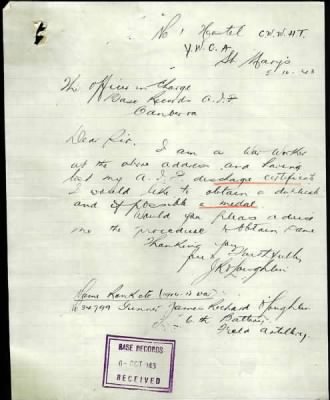 No 1 Hostel C.W.W.HT.
Y.W.C.A
St Marys
5.10.43
The Officer in Charge
Base Records A.I.F
Canberra
Dear Sir,
I am a War Worker
at the above address and having
lost my A.I.F discharge certificate
I would like to obtain a duplicate
and if possible a medal
Would you please advise
me the procedure to obtain same
Thanking you
yours faithfully
J R O'Loughlin
Name Rank etc
34799 Gunner James Richard O'Loughlin
Battery
Field Artillery
BASE RECORDS
OCT
RECEIVED